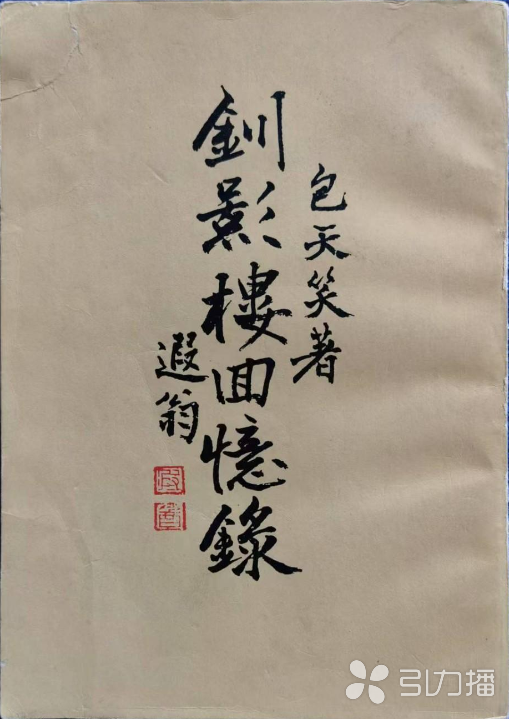 包天笑著
釧影樓回憶錄
遐翁
引力播